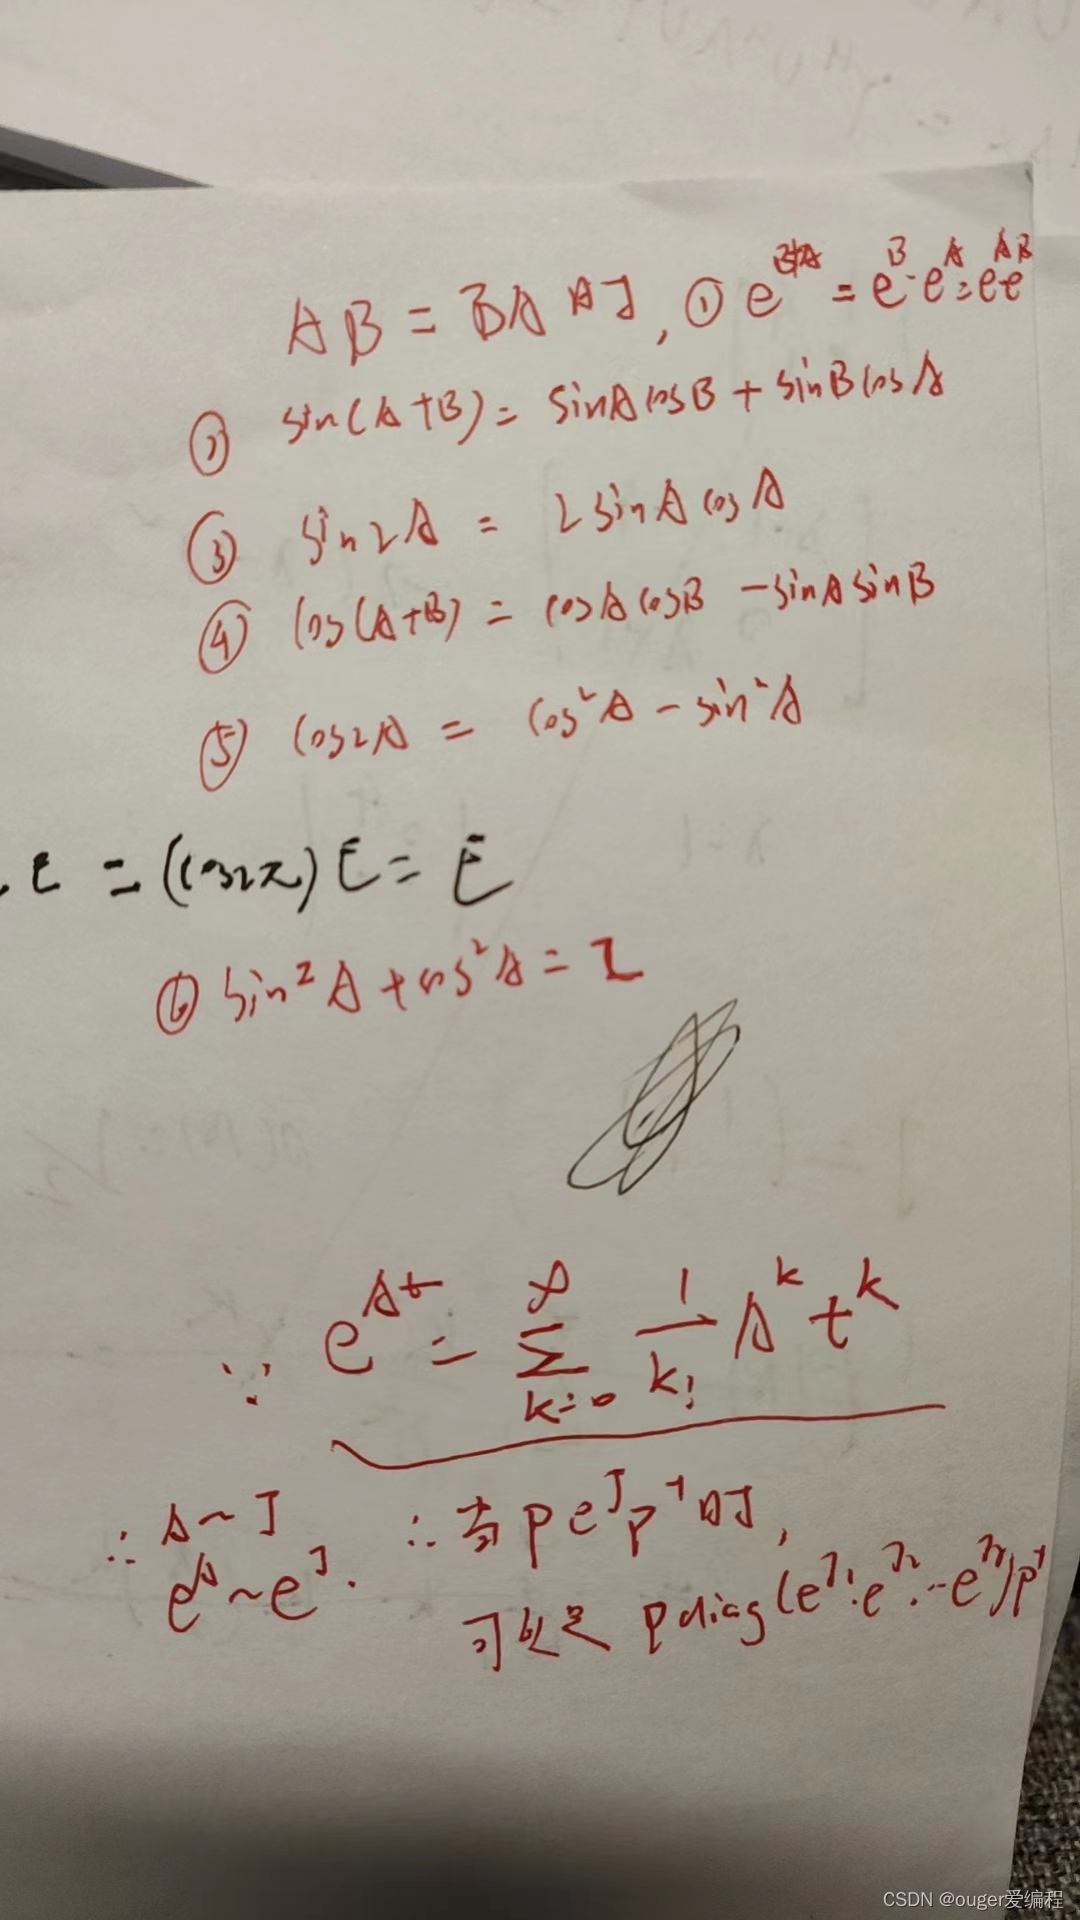 AB = BA 时, ① e^{B+A} = e^B·e^A = e^A e^B
② sin(A+B) = sinA cosB + sinB cosA
③ sin2A = 2sinA cosA
④ cos(A+B) = cosA cosB - sinA sinB
⑤ cos2A = cos²A - sin²A
E = (cos2π)E = E
⑥ sin²A + cos²A = I
∵ e^{At} = ∑_{k=0}^{∞} \frac{1}{k!} A^k t^k
∴ A ~ J ∴ 当 Pe^J P^{-1} 时,
e^A ~ e^J. Pdiag(e^{J_1}·e^{J_2}…e^{J_r})P^{-1}
CSDN @ouger爱编程